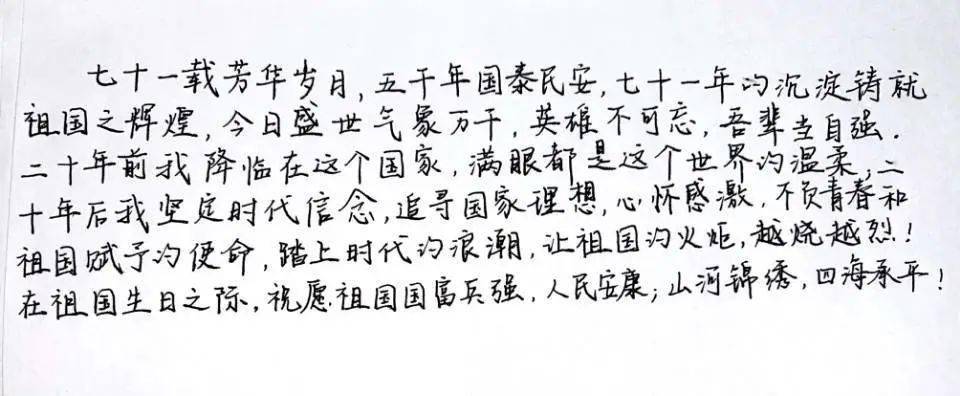 七十一载芳华岁月,五千年国泰民安,七十一年的沉淀铸就
祖国之辉煌,今日盛世气象万千,英雄不可忘,吾辈当自强.
二十年前我降临在这个国家,满眼都是这个世界的温柔,二
十年后我坚定时代信念,追寻国家理想,心怀感激,不负青春和
祖国赋予的使命,踏上时代的浪潮,让祖国的火炬,越烧越烈!
在祖国生日之际,祝愿祖国国富兵强,人民安康;山河锦绣,四海承平!